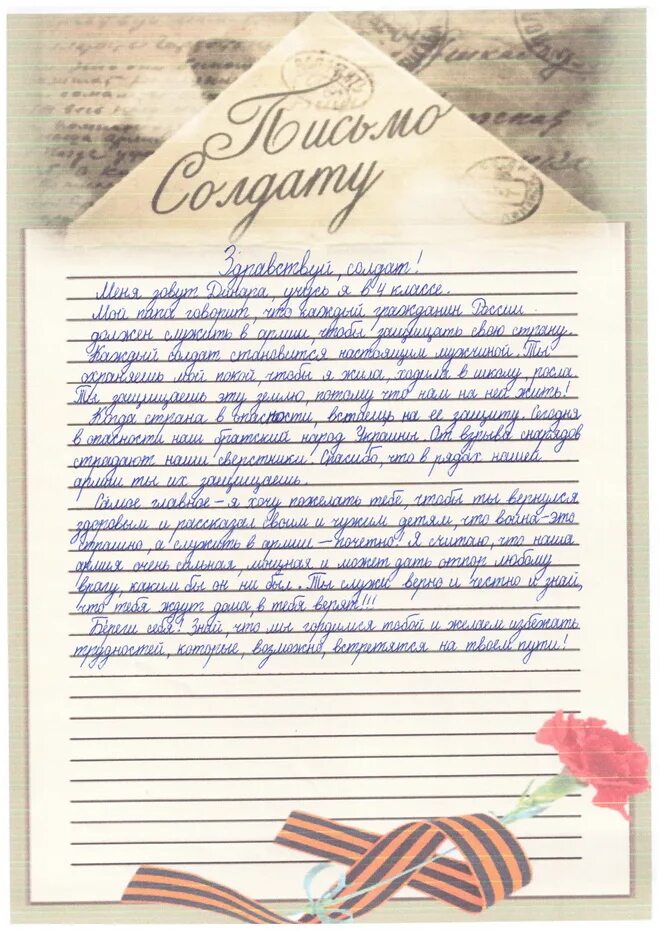 Письмо
Солдату
Здравствуй, солдат!
Меня зовут Динара, учусь я в 4 классе.
Мой папа говорит, что каждый гражданин России
должен служить в армии, чтобы защищать свою страну.
Каждый солдат становится настоящим мужчиной. Ты
охраняешь мой покой, чтобы я жила, ходила в школу, росла.
Ты защищаешь эту землю, потому что нам на ней жить!
Когда страна в опасности, встаешь на ее защиту. Сегодня
в опасности наш братский народ Украины. От взрыва снарядов
страдают наши сверстники. Спасибо, что в рядах нашей
армии ты их защищаешь.
Самое главное – я хочу пожелать тебе, чтобы ты вернулся
здоровым и рассказал своим и чужим детям, что война – это
страшно, а служить в армии – почетно. Я считаю, что наша
армия очень сильная, мощная и может дать отпор любому
врагу, каким бы он ни был. Ты служи верно и честно и знай,
что тебя ждут дома в тебя верят!!!
Береги себя! Знай, что мы гордимся тобой и желаем избежать
трудностей, которые, возможно, встретятся на твоем пути!